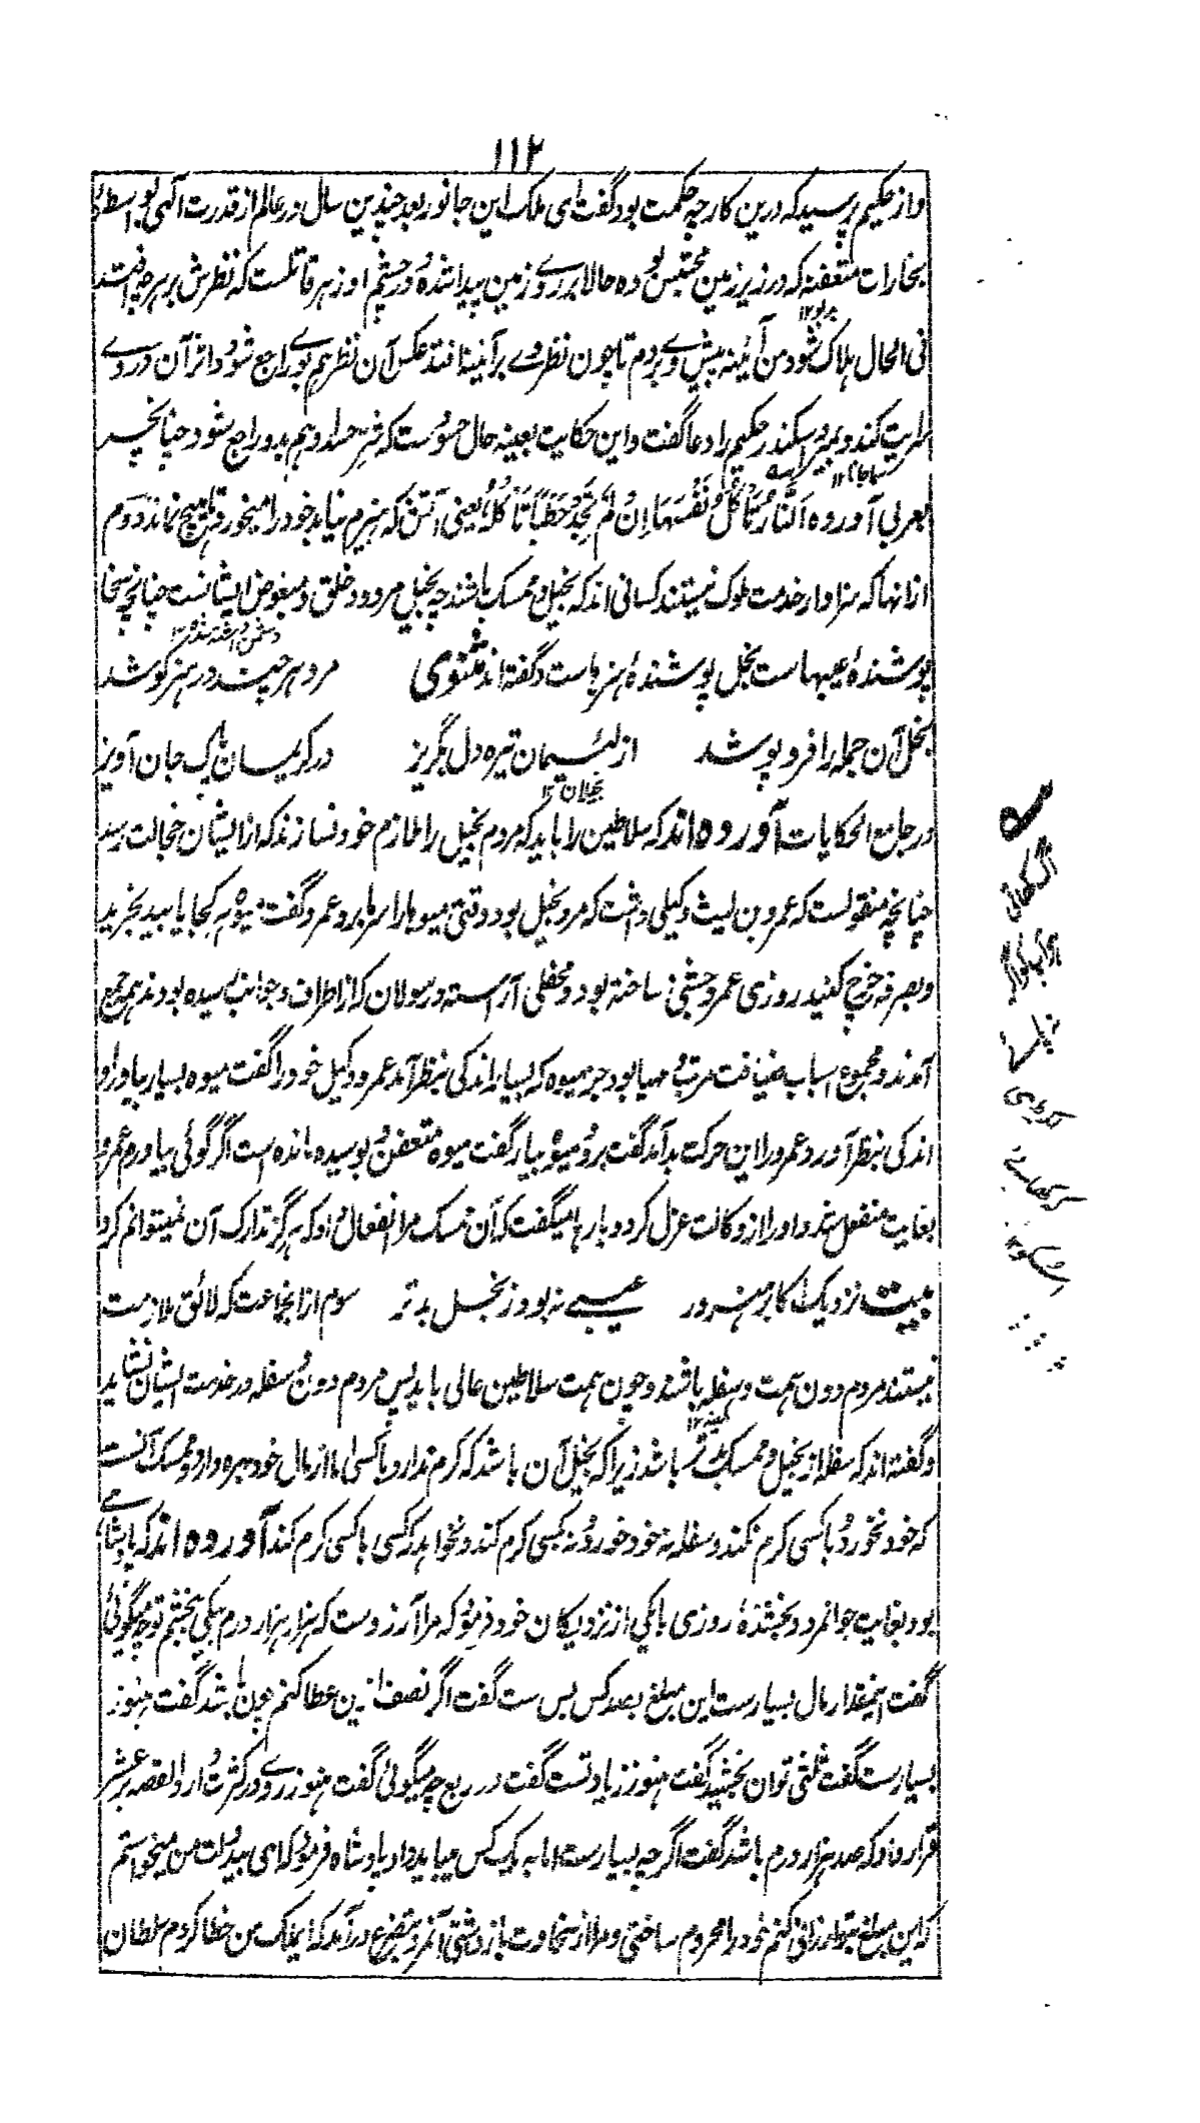 ۱۱۲
و از حکیم پرسید که درین کار چه حکمت بود گفت ای ملک این جانور بعد چندین سال در عالم از قدرت الهی بواسطهٔ
بخارات متعفنه که در زیر زمین محتبس بوده حالا بر روے زمین پیدا شده و در چشم او زهر قاتلست که نظرش بر هر چه افتد
فی الحال هلاک شود من آئینه پیش وے بردم تا چون نظر وے بر آئینه افتد عکس آن نظر هم بوے راجع شود و اثر آن در وے
سرایت کند و بمیرد سکندر حکیم را دعا گفت و این حکایت بعینه حال حسودست که ضرر حسد او هم بدو راجع شود چنانچه
بعربی آورده اَلنَّارُ تَأْكُلُ نَفْسَهَا اِنْ لَمْ تَجِدْ حَطَبًا تَأْكُلُهُ یعنی آتش که هیزم نیابد خود را میخورد تا هیچ نماند دوم
از آنها که سزاوار خدمت ملوک نیستند کسانی اند که بخیل و ممسک باشند چه بخیل مردود خلق و مبغوض ایشانست چنانچه سخا
پوشندهٔ عیبهاست بخل پوشندهٔ هنرهاست و گفته اند مثنوی مرد هر چند در هنر کوشد
بخل آن جمله را فرو پوشد از لئیمان تیره دل بگریز در کریمان پاک جان آویز
بخیلان ۱۲
در جامع الحکایات آورده اند که سلاطین را باید که مردم بخیل را ملازم خود نسازند که از ایشان خجالت رسد
چنانچه منقولست که عمرو بن لیث وکیلی داشت که مرد بخیل بود وقتی میوها را سرما برد عمرو گفت میوه بهر کجا یابید بخرید
و بصرفه خرج کنید روزی عمرو جشنی ساخته بود و محفلی آراسته و رسولان که از اطراف و جوانب رسیده بودند همه جمع
آمدند و مجموع اسباب ضیافت مرتب و مهیا بود جز میوه که بسیار اندکی بنظر آمد عمرو وکیل خود را گفت میوه بسیار بیاور او
اندکی بنظر آورد عمرو را این حرکت بد آمد گفت برو میوه بیار گفت میوه متعفن و پوسیده مانده است اگر گوئی بیاورم عمرو
بغایت منفعل شد و او را از وکالت عزل کرد و بارها میگفت که آن ممسک مرا انفعالی داد که هرگز تدارک آن نمیتوانم کرد
بیت نزدیک اکابر هنرور عیبے نبود ز بخل بدتر سوم از انجماعت که لائق ملازمت
نیستند مردم دون همت و سفله باشند و چون همت سلاطین عالی باید پس مردم دون و سفله در خدمت ایشان نشاید
و گفته اند که سفله از بخیل و ممسک بدتر باشد زیرا که بخیل آن باشد که کرم ندارد با کسی اما از مال خود بهره دارد و ممسک آنست
که خود نخورد و با کسی کرم نکند و سفله نه خود خورد و نه بکسی کرم کند و نخواهد که کسی با کسی کرم کند آورده اند که پادشاہے
بود بغایت جوانمرد و بخشنده روزی با یکی از نزدیکان خود فرمود که مرا آرزوست که هزار هزار درم بیکی بخشم تو چه میگوئی
گفت اینمقدار مال بسیارست این مبلغ بصد کس بس ست گفت اگر نصف ازین عطا کنم چون باشد گفت هنوز
بسیارست گفت ثلثی توان بخشید گفت هنوز زیادتست گفت در ربع چه میگوئی گفت هنوز روے در کثرت دارد القصه بر عشر
قرار داد که صد هزار درم باشد گفت اگر چه بسیارست اما به یک کس میباید داد پادشاه فرمود که ای بیدولت من میخواستم
که این مبلغ بتو ارزانی کنم خود را محروم ساختی و مرا از سخاوت باز داشتی آنمرد بتضرع درآمد که ایملک من خطا کردم سلطان